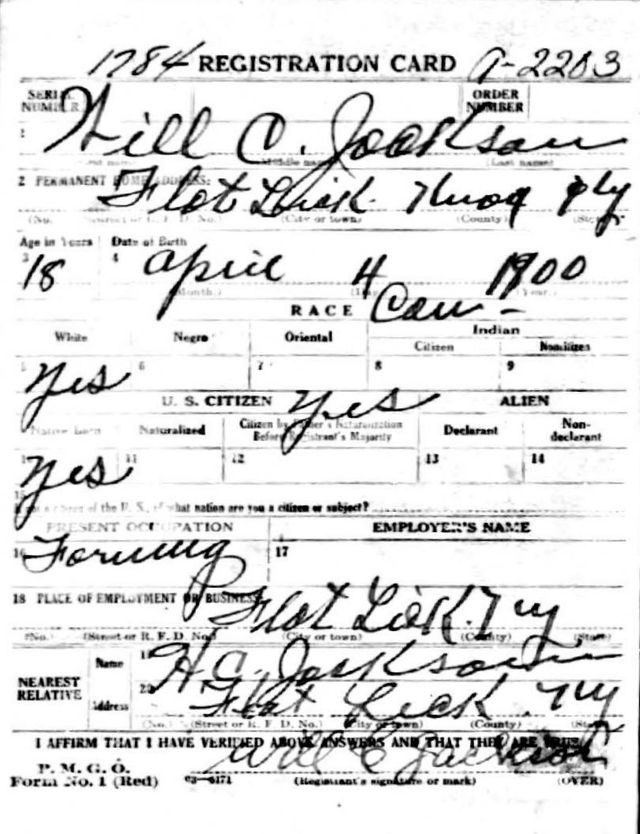 1784 REGISTRATION CARD A-2203
SERIAL NUMBER
ORDER NUMBER
1 Will C. Jackson
(First name) (Middle name) (Last name)
2 PERMANENT HOME ADDRESS:
Flat Lick Knox Ky
(No.) (Street or R. F. D. No.) (City or town) (County) (State)
Age in Years Date of Birth
3 18 4 April 4 1900
(Month.) (Day.) (Year.)
RACE Cau -
White Negro Oriental Indian
Citizen Noncitizen
5 Yes 6 7 8 9
U. S. CITIZEN Yes ALIEN
Native Born Naturalized Citizen by Father's Naturalization Before Registrant's Majority Declarant Non-declarant
Yes 11 12 13 14
15
If not a citizen of the U. S., of what nation are you a citizen or subject?
PRESENT OCCUPATION EMPLOYER'S NAME
16 Farming 17
18 PLACE OF EMPLOYMENT OR BUSINESS
Flat Lick. Ky
(No.) (Street or R. F. D. No.) (City or town) (County) (State)
NEAREST RELATIVE
Name 19 H. C. Jackson
Address 20 Flat Lick Ky
(No.) (Street or R. F. D. No.) (City or town) (County) (State)
I AFFIRM THAT I HAVE VERIFIED ABOVE ANSWERS AND THAT THEY ARE TRUE
P. M. G. O.
Form No. 1 (Red) 03—6171 Will C Jackson
(Registrant's signature or mark) (OVER)